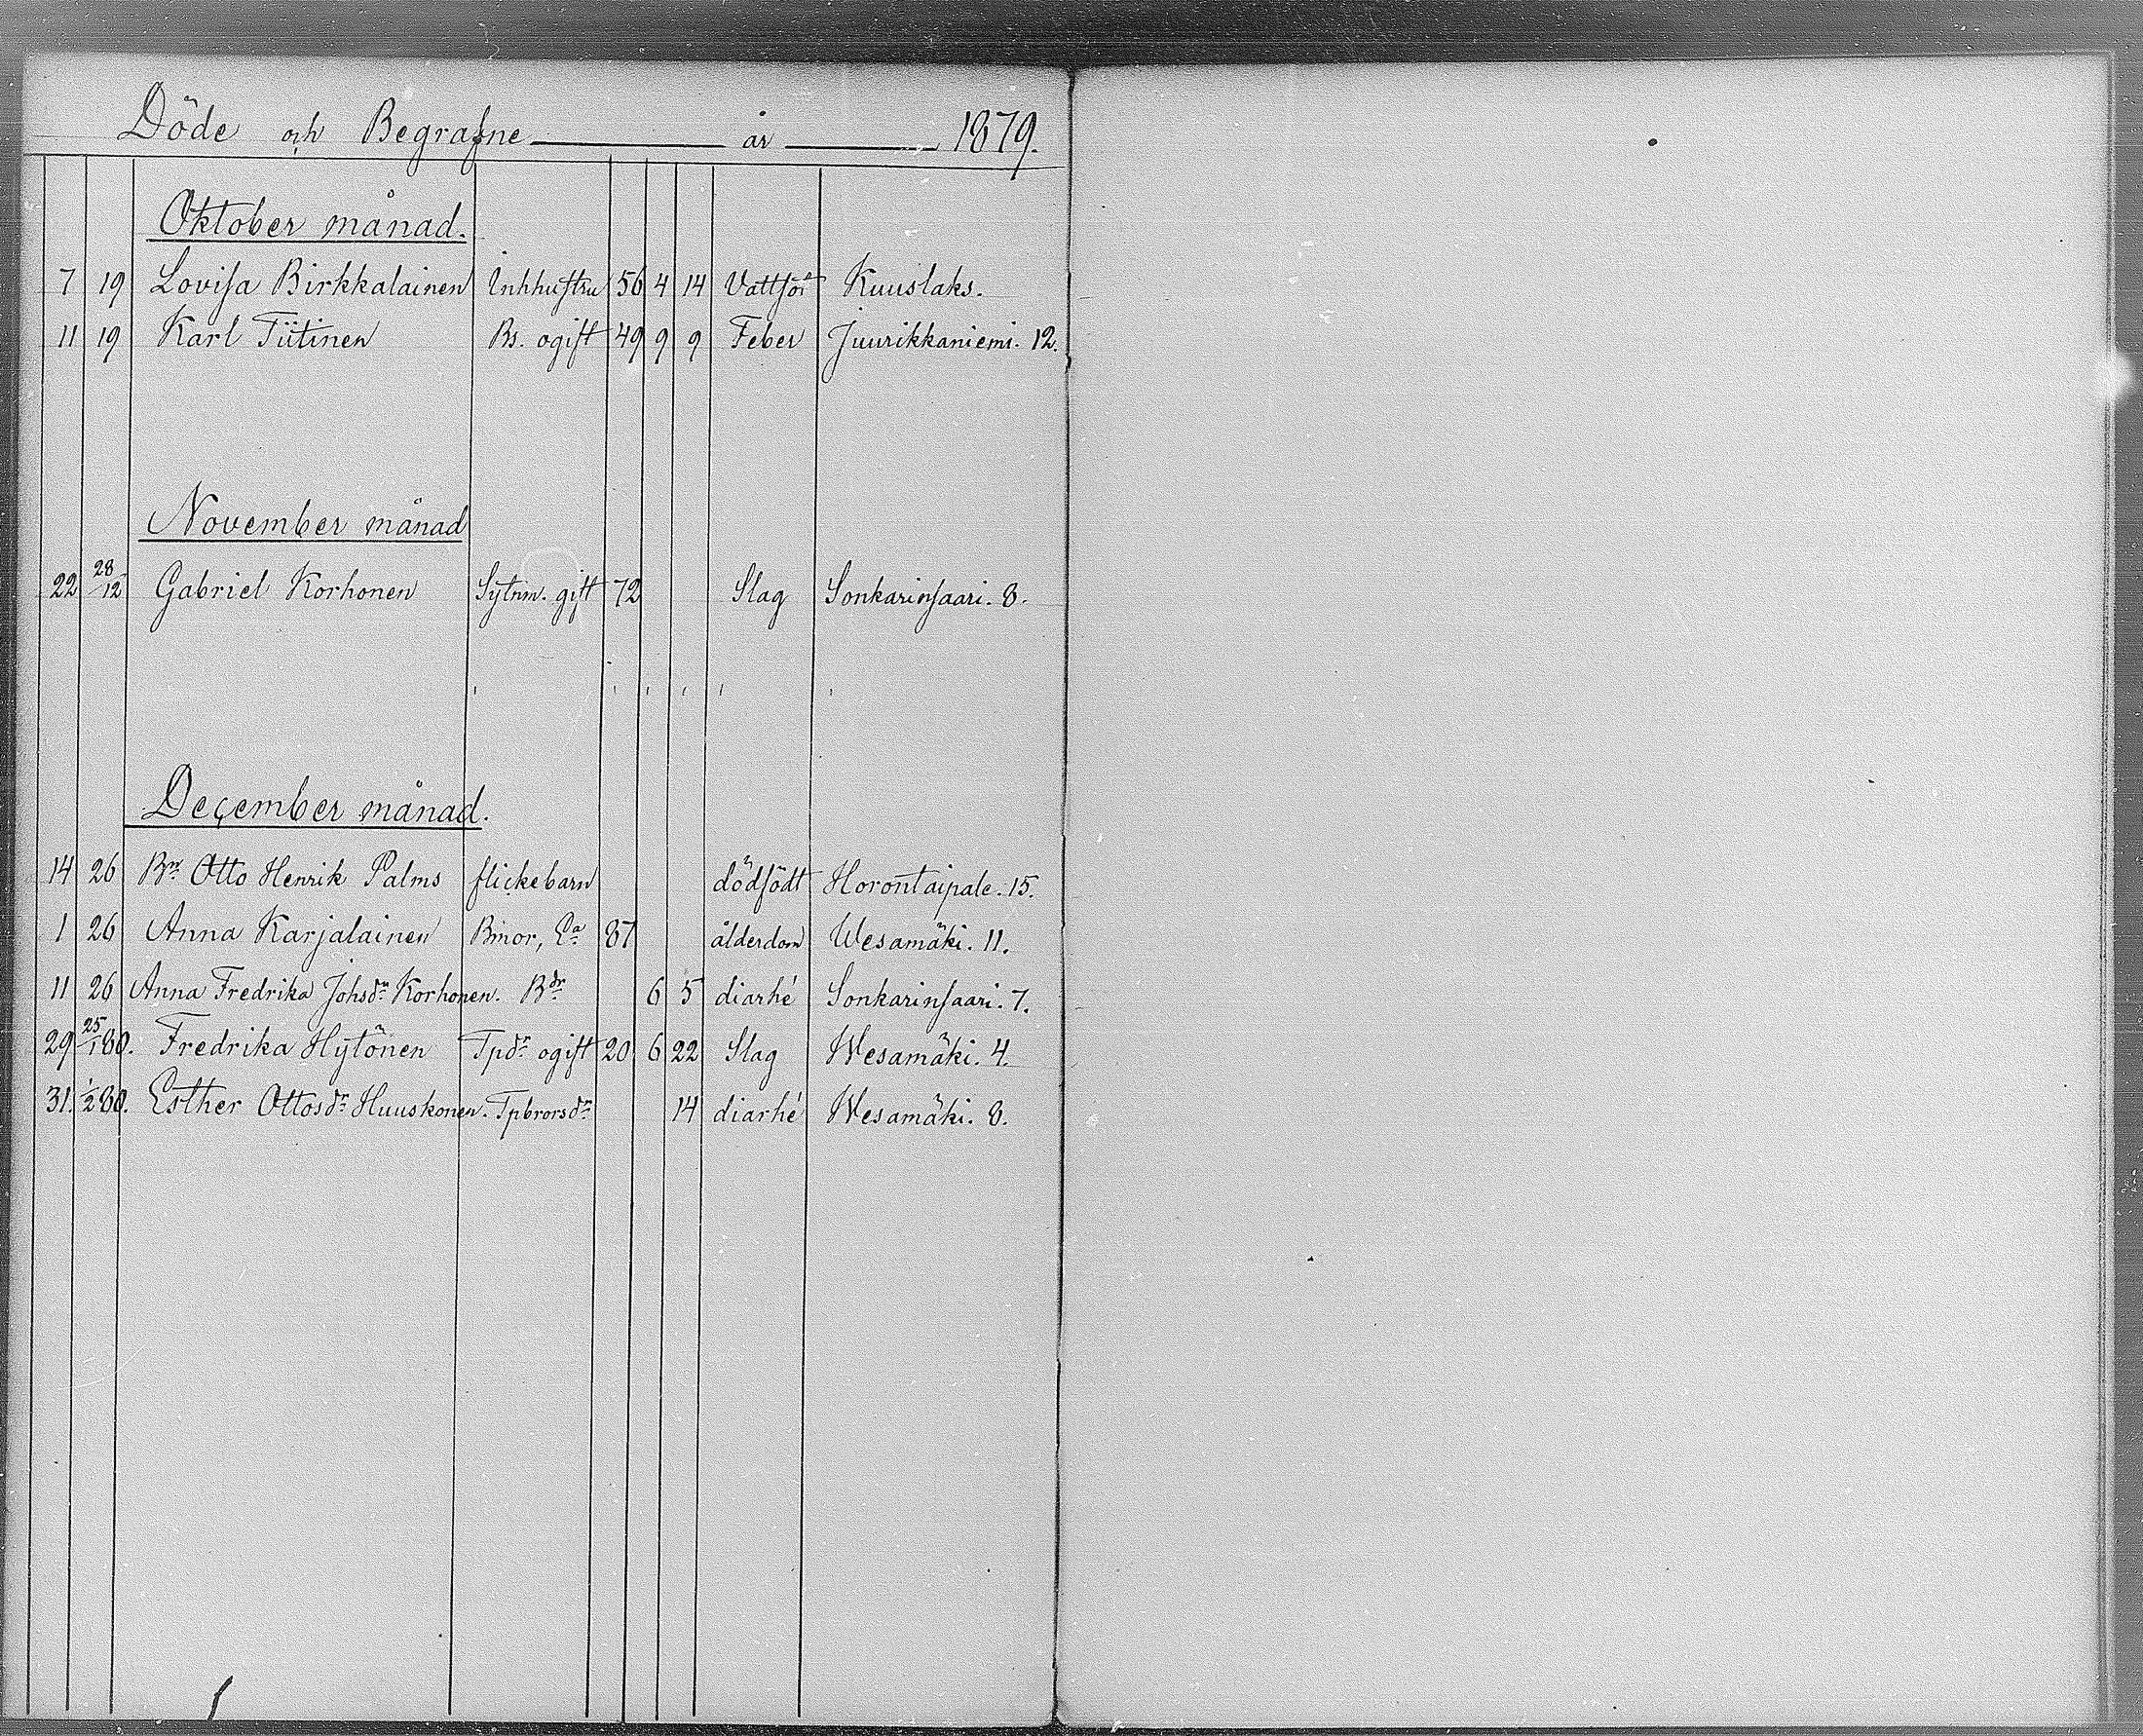 Döde och Begrafne år 1879.
Oktober månad.
7 19 Lovisa Birkkalainen Inhhustru 56 4 14 Vattsot Kuuslaks.
11 19 Karl Tiitinen Bs. ogift 49 9 9 Feber Juurikkaniemi. 12.
November månad
22 28/12 Gabriel Korhonen Sytnm. gift 72 Slag Sonkarinsaari. 8.
December månad.
14 26 Bn Otto Henrik Palms flickebarn dödfödt Horontaipale. 15.
1 26 Anna Karjalainen Bmor, Ea 87 ålderdom Wesamäki. 11.
11 26 Anna Fredrika Johsdr Korhonen. Bdr 6 5 diarhé Sonkarinsaari. 7.
29 25/1 80. Fredrika Hytönen Tpdr ogift 20 6 22 Slag Wesamäki. 4.
31. 1/2 80. Esther Ottosdr Huuskonen. Tpbrorsdr 14 diarhé Wesamäki. 8.